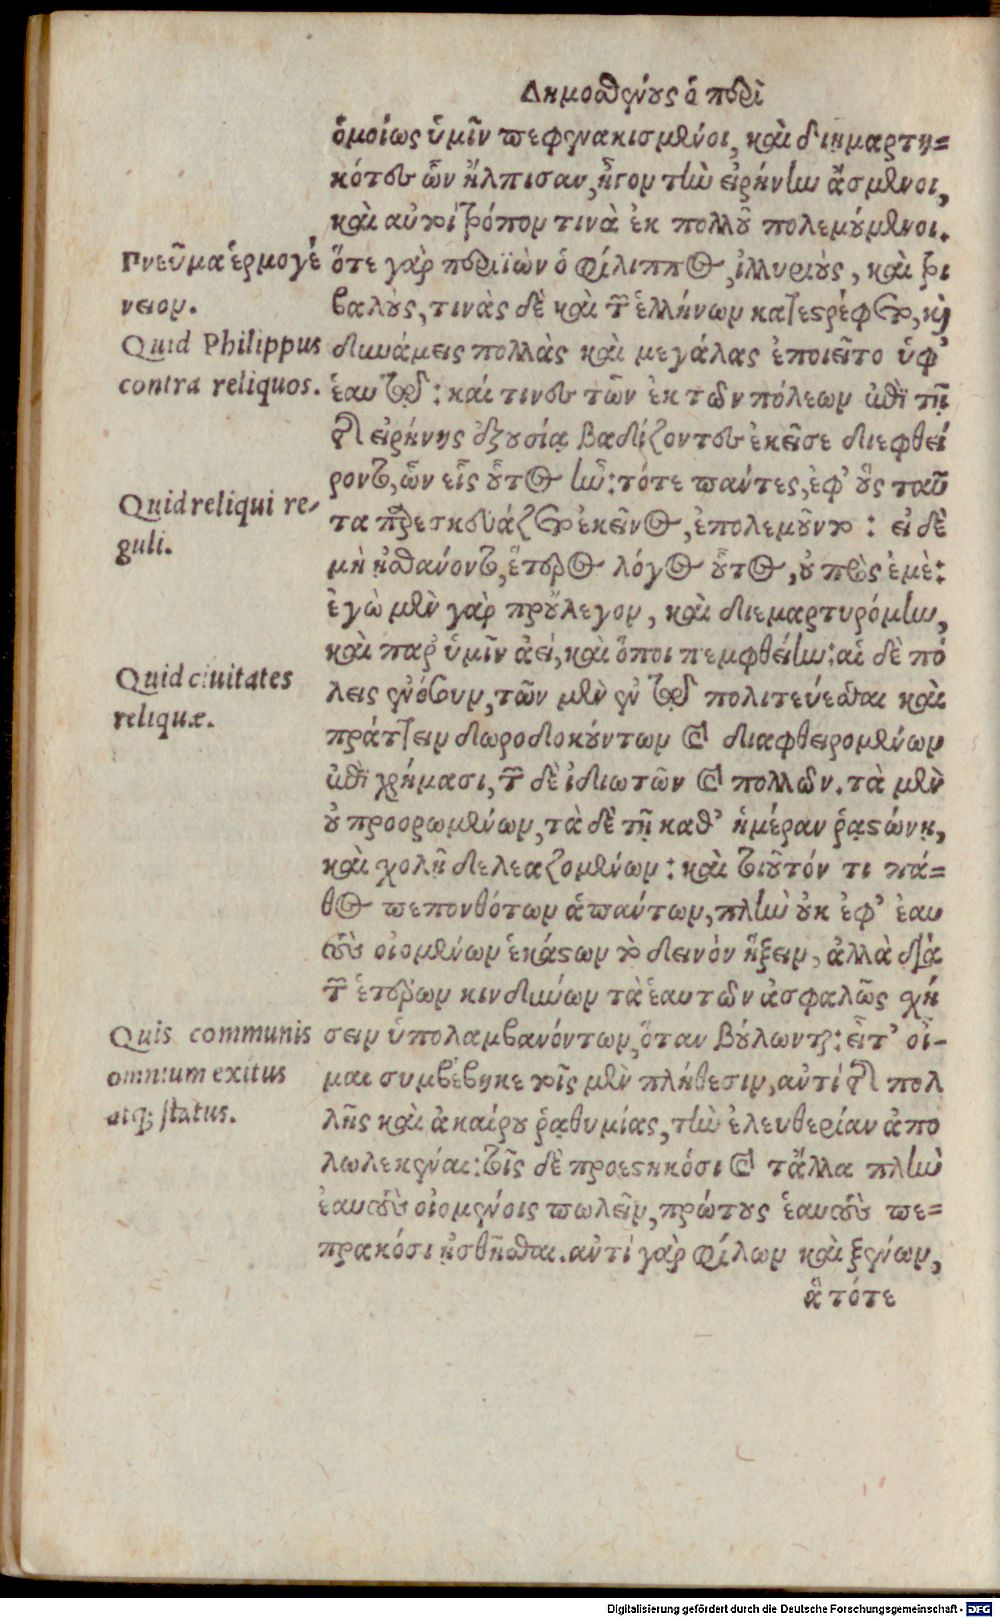 Δημοσθένους ὁ περὶ
ὁμοίως ὑμῖν πεφενακισμένοι, καὶ διημαρτη=
κότες ὧν ἤλπισαν, ἦγον τὴν εἰρήνην ἄσμενοι,
καὶ αὐτοὶ τρόπον τινὰ ἐκ πολλοῦ πολεμούμενοι.
ὅτε γὰρ περιϊὼν ὁ Φίλιππος, ἰλλυριοὺς, καὶ τρι
βαλοὺς, τινὰς δὲ καὶ τῶν ἑλλήνων κατεστρέφετο, καὶ
δυνάμεις πολλὰς καὶ μεγάλας ἐποιεῖτο ὑφ'
ἑαυτῷ: καί τινες τῶν ἐκ τῶν πόλεων ἐπὶ τῇ
τῆς εἰρήνης ἐξουσίᾳ βαδίζοντες ἐκεῖσε διεφθεί
ροντο, ὧν εἷς οὗτος ἦν: τότε πάντες, ἐφ' οὓς ταῦ
τα παρεσκευάζετο ἐκεῖνος, ἐπολεμοῦντο: εἰ δὲ
μὴ ᾐσθάνοντο, ἕτερος λόγος οὗτος, οὐ πρὸς ἐμὲ:
ἐγὼ μὲν γὰρ προὔλεγον, καὶ διεμαρτυρόμην,
καὶ παρ' ὑμῖν ἀεί, καὶ ὅποι πεμφθείην: αἱ δὲ πό
λεις ἐνόσουν, τῶν μὲν ἐν τῷ πολιτεύεσθαι καὶ
πράττειν δωροδοκούντων καὶ διαφθειρομένων
ἐπὶ χρήμασι, τῶν δὲ ἰδιωτῶν καὶ πολλῶν. τὰ μὲν
οὐ προορωμένων, τὰ δὲ τῇ καθ' ἡμέραν ῥᾳστώνῃ,
καὶ σχολῇ δελεαζομένων: καὶ τοιοῦτόν τι πά=
θος πεπονθότων ἁπάντων, πλὴν οὐκ ἐφ' ἑαυ
τοὺς οἰομένων ἑκάστων τὸ δεινὸν ἥξειν, ἀλλὰ διὰ
τῶν ἑτέρων κινδύνων τὰ ἑαυτῶν ἀσφαλῶς σχή
σειν ὑπολαμβανόντων, ὅταν βούλωνται: εἶτ' οἶ-
μαι συμβέβηκε τοῖς μὲν πλήθεσιν, αὐτὶ τῆς πολ
λῆς καὶ ἀκαίρου ῥαθυμίας, τὴν ἐλευθερίαν ἀπο
λωλεκέναι: τοῖς δὲ προεστηκόσι καὶ τἄλλα πλὴν
ἑαυτοὺς οἰομένοις πωλεῖν, πρώτους ἑαυτοὺς πε=
πρακόσι ᾐσθῆσθαι. αὐτὶ γὰρ φίλων καὶ ξένων,
ἃ τότε
Πνεῦμα ἑρμογέ
νειον.
Quid Philippus
contra reliquos.
Quid reliqui re-
guli.
Quid ciuitates
reliquæ.
Quis communis
omnium exitus
atq; status.
Digitalisierung gefördert durch die Deutsche Forschungsgemeinschaft - DFG